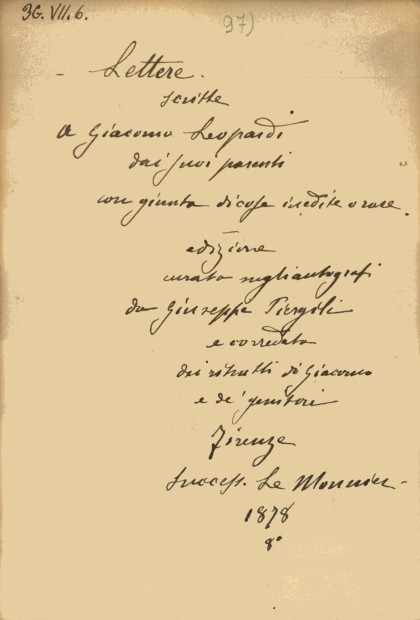 3G. VII. 6.
97)
Lettere.
scritte
a Giacomo Leopardi
dai suoi parenti
con giunta di cose inedite o rare.
edizione
curata sugli autografi
da Giuseppe Piergili
e corredata
dai ritratti di Giacomo
e de' genitori
Firenze
Success. Le Monnier
1878
8°